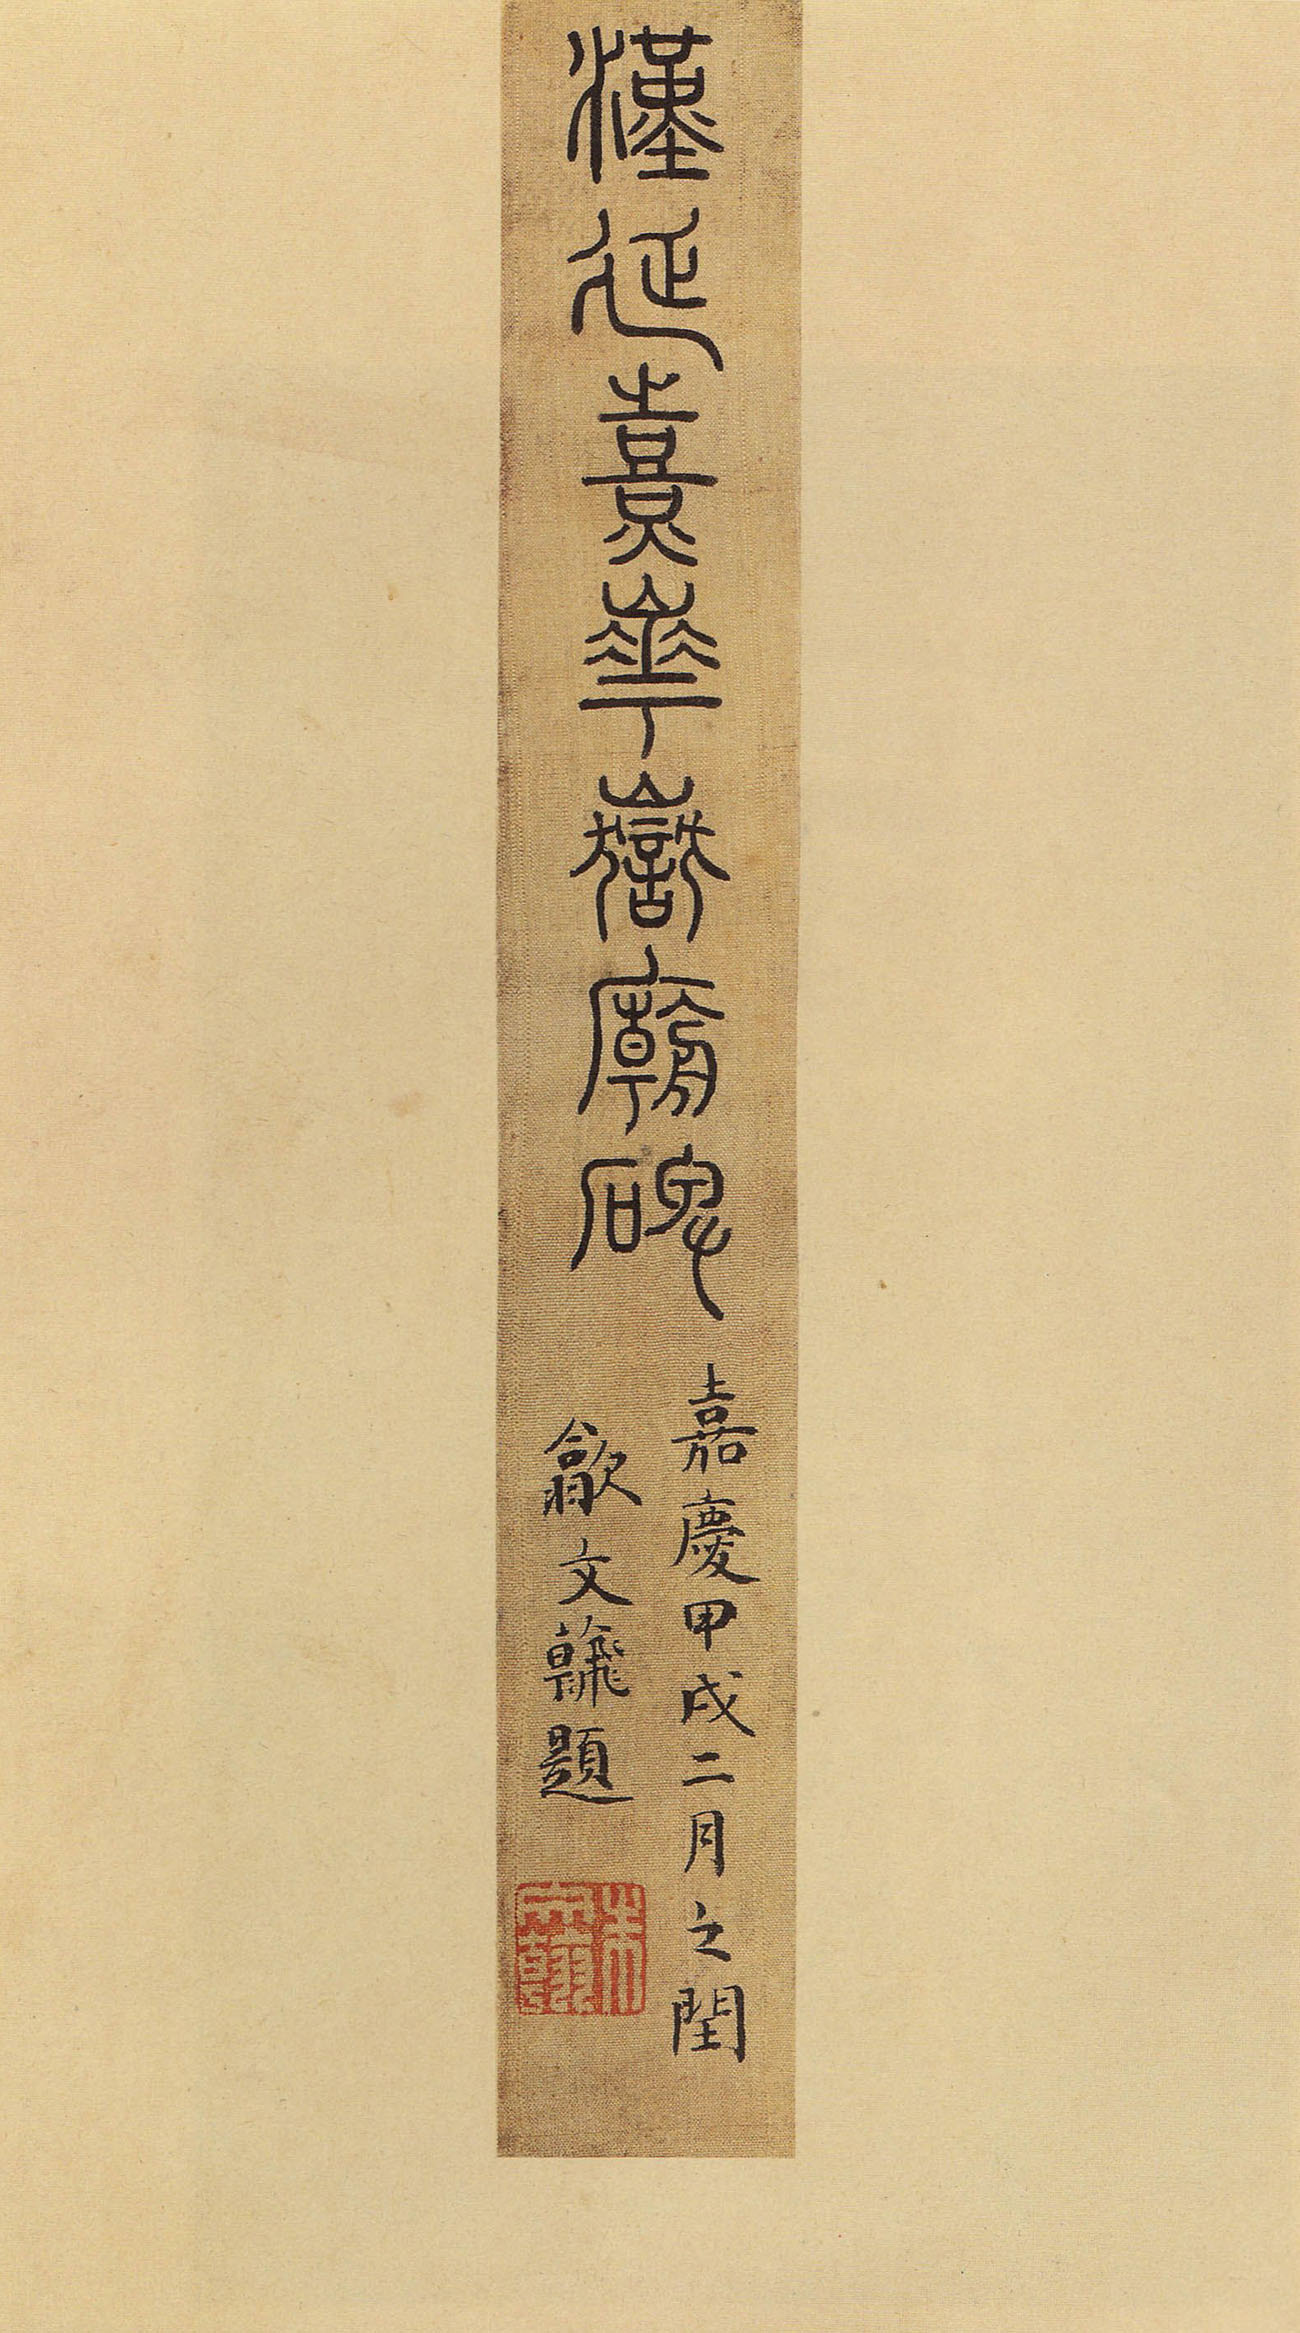 漢延熹崋嶽廟碑
嘉慶甲戌二月之閏
歙文翰題
朱文翰